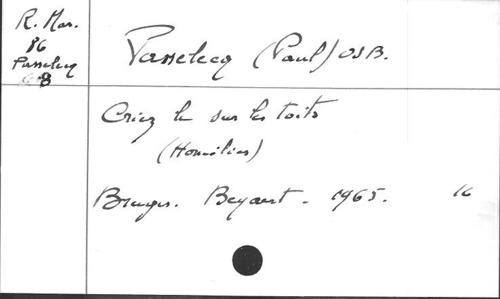 R. Mar.
86
Passelecq
8
Passelecq (Paul) OSB.
Criez le sur les toits
(Homélies)
Bruges. Beyaert - 1965. 16